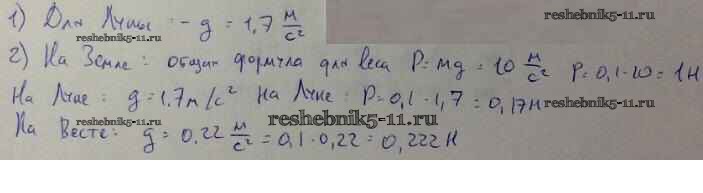 1) Для Луны : - g = 1,7 м/с²
reshebnik5-11.ru
2) На Земле : общая формула для веса P = mg = 10 м/с² P = 0,1 · 10 = 1Н
На Луне : g = 1.7 м/с² На Луне : P = 0,1 · 1,7 = 0,17Н
На Весте : g = 0.22 м/с² = 0,1 · 0,22 = 0,222 Н
reshebnik5-11.ru
reshebnik5-11.ru
reshebnik5-11.ru
reshebnik5-11.ru